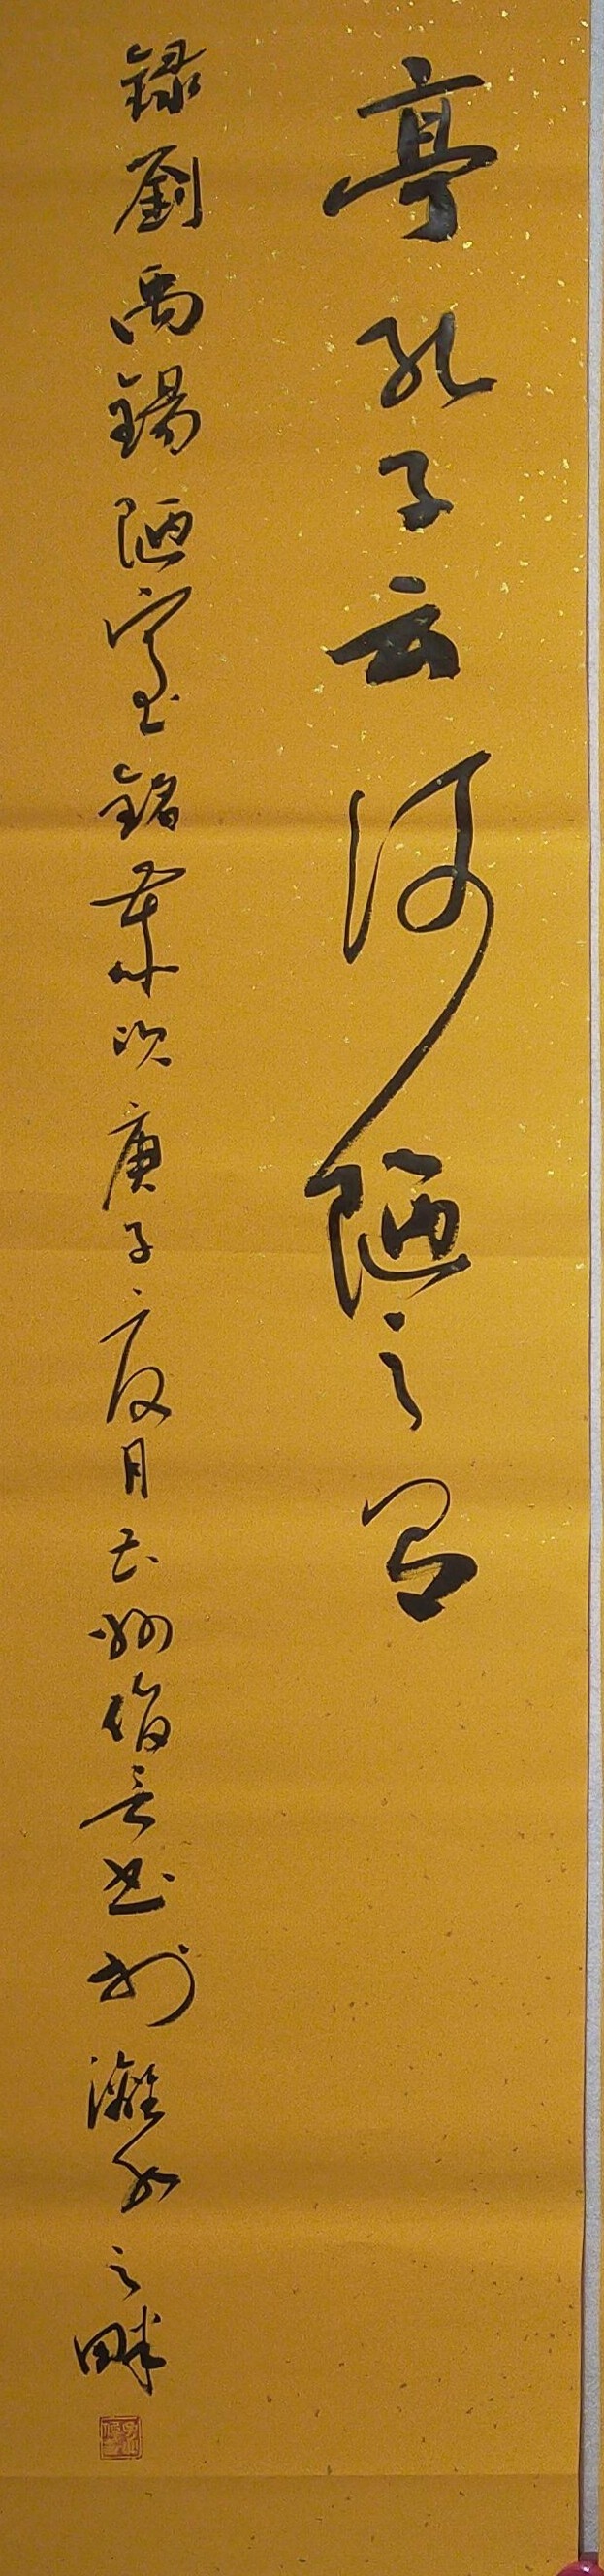 亭孔子云何陋之有
錄劉禹錫陋室銘歲次庚子夏月書於濰水之畔